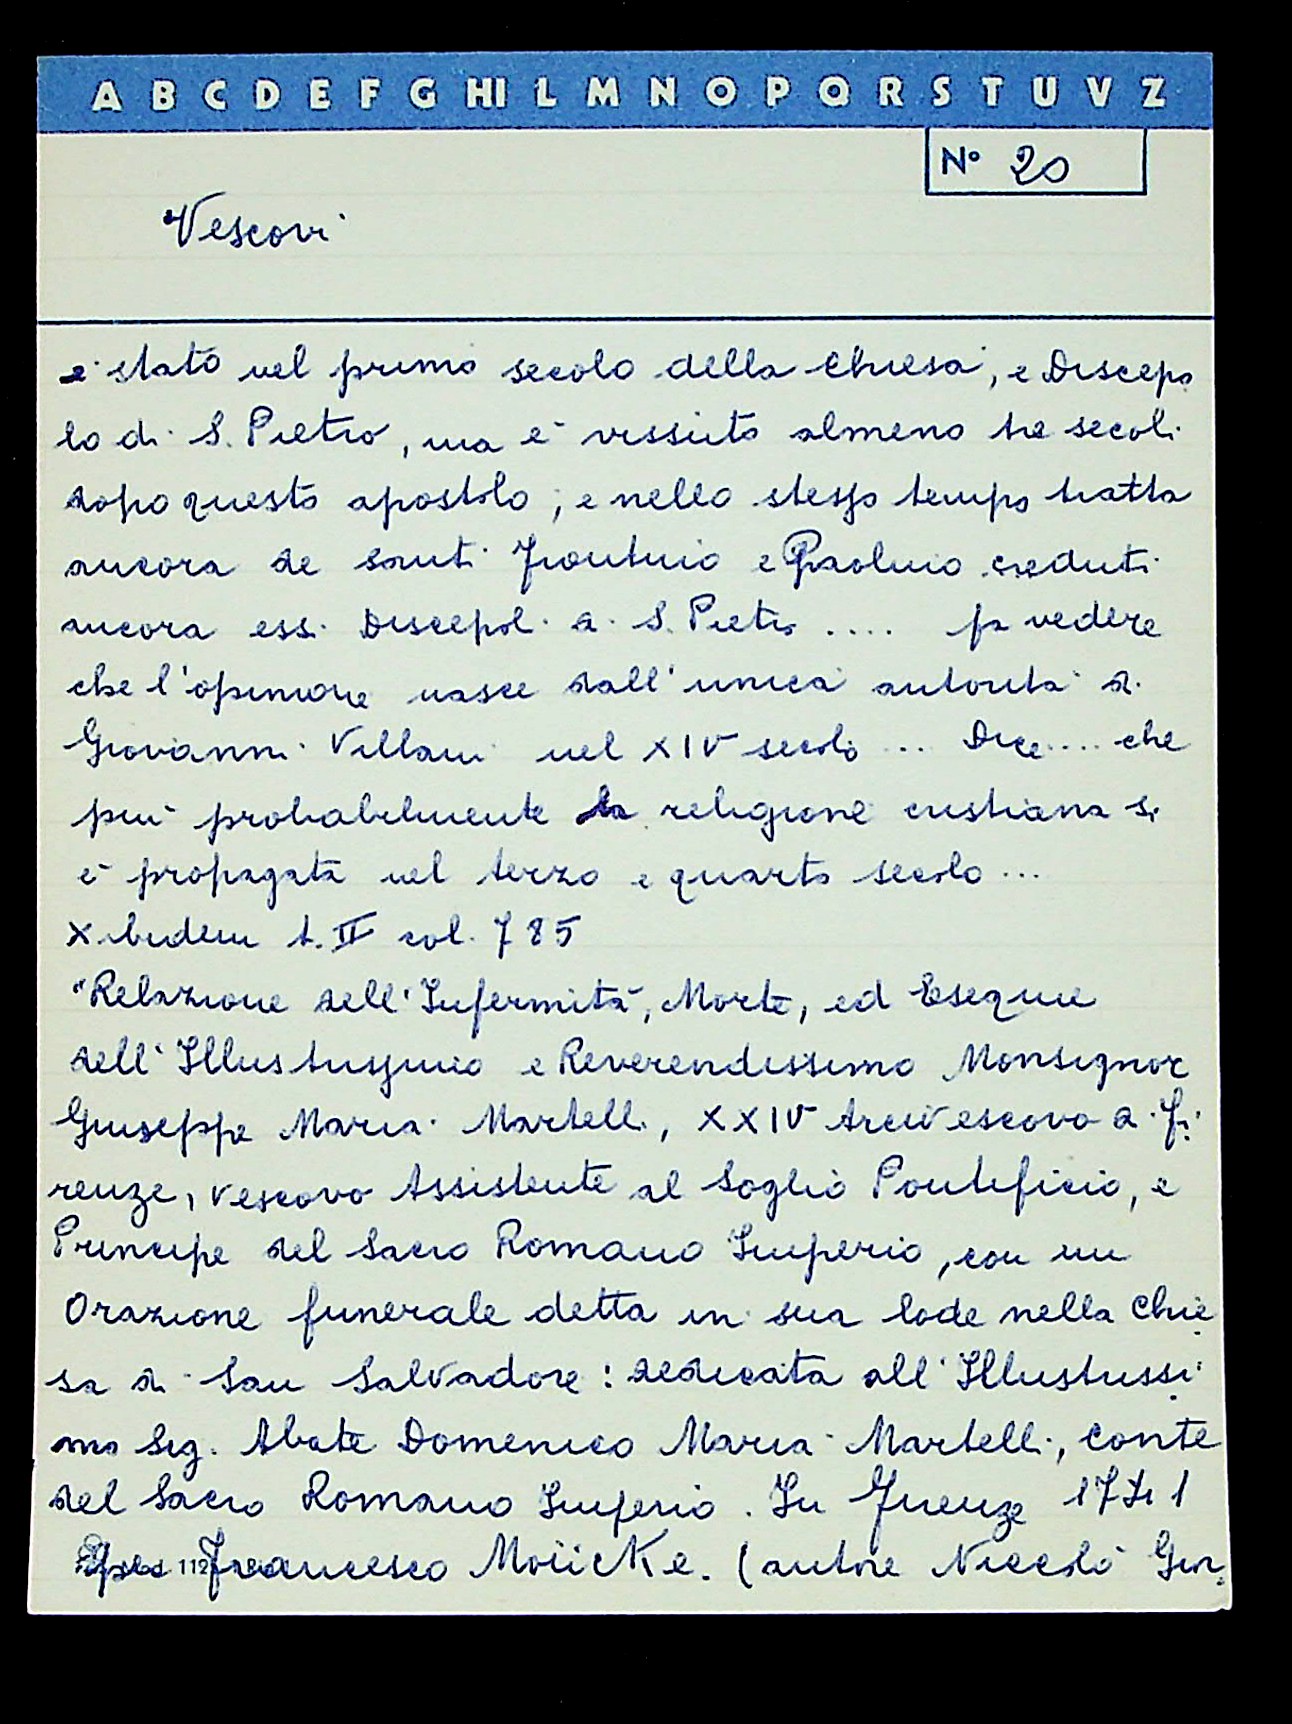 A B C D E F G HI L M N O P Q R S T U V Z
N° 20
Vescovi
è stato nel primo secolo della Chiesa, e Discepo
lo di S. Pietro, ma è vissuto almeno tre secoli
dopo questo apostolo; e nello stesso tempo tratta
ancora de santi Frontino e Paolino creduti
ancora essi Discepoli di S. Pietro .... fa vedere
che l'opinione nasce dall'unica autorità di
Giovanni Villani nel XIV secolo ... Dice .... che
più probabilmente la religione cristiana si
è propagata nel terzo e quarto secolo ...
X ibidem t. II col. 785
"Relazione dell'Infermità, Morte, ed Esequie
dell'Illustrissimo e Reverendissimo Monsignor
Giuseppe Maria Martelli, XXIV Arcivescovo di Fi
renze, Vescovo Assistente al Soglio Pontificio, e
Principe del Sacro Romano Imperio, con un
Orazione funerale detta in sua lode nella Chie
sa di San Salvadore: dedicata all'Illustrissi
mo Sig. Abate Domenico Maria Martelli, Conte
del Sacro Romano Imperio. In Firenze 1741
Francesco Moücke. (autore Niccolò Gin